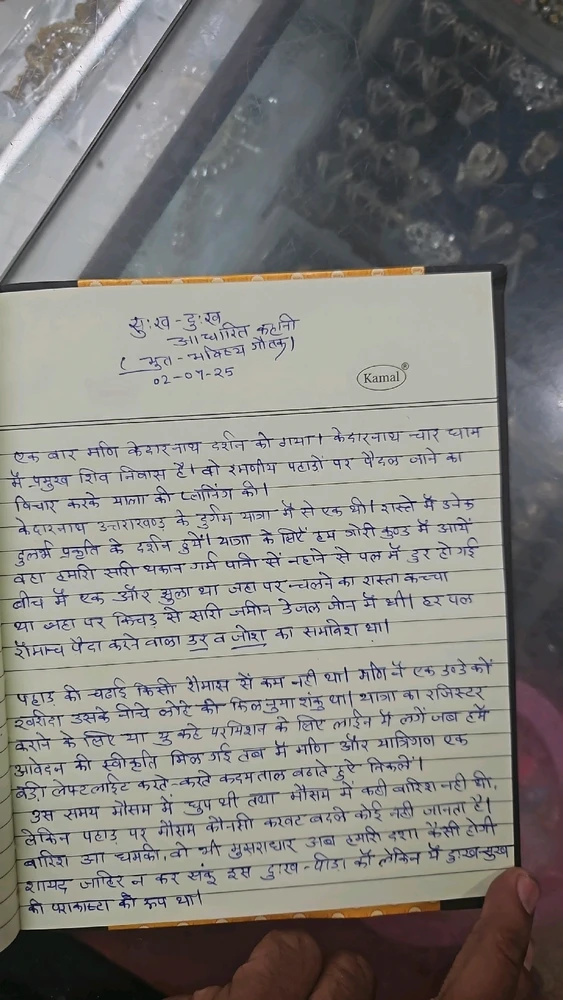 सु:ख-दु:ख
आधारित कहानी
(भूत-भविष्य जातक)
02-07-25
Kamal®
एक बार मणि केदारनाथ दर्शन को गया। केदारनाथ चार धाम
में प्रमुख शिव निवास है। वो रमणीय पहाड़ों पर पैदल जाने का
विचार करके यात्रा की प्लानिंग की।
केदारनाथ उत्तराखण्ड के दुर्गम यात्रा में से एक थी। रास्ते में अनेक
दुर्लभ प्रकृति के दर्शन हुयें। यात्रा के लिऐं हम जोरी कुण्ड में आयें
वहा हमारी सारी थकान गर्म पानी सें नहाने से पल में दुर हो गई
बीच में एक और झुला था जहा पर चलने का रास्ता कच्चा
था जहा पर किचड़ से सारी जमिन डेंजल जोन में थी। हर पल
रौमान्च पैदा करने वाला डर व जोश का समावेश था।
पहाड़ की चढाई किसी रौमास सें कम नही था। मणि नें एक डण्डे कों
खरीदा उसके नीचे लोहे की किलनुमा शंकु था। यात्रा का रजिस्टर
कराने के लिए या यु कहें परमिशन के लिए लाईन में लगें जब हमें
आवेदन की स्वीकृति मिल गई तब में मणि और यात्रिगण एक
बड़ी लेफ्ट लाईट करते, करते कदमताल बढाते हुऐ निकलें।
उस समय मौसम में धुप थी तथा मौसम में कही बारिश नही थी,
लेकिन पहाड़ पर मौसम कौनसी करवट बदले कोई नही जानता है।
बारिश आ धमकी, वो भी मुसराधार अब हमारी दशा कैसी होगी
शायद जाहिर न कर सकूं इस दुःख-पीड़ा कों लेकिन में दुःख-सुख
की पराकाष्टा का रूप था।